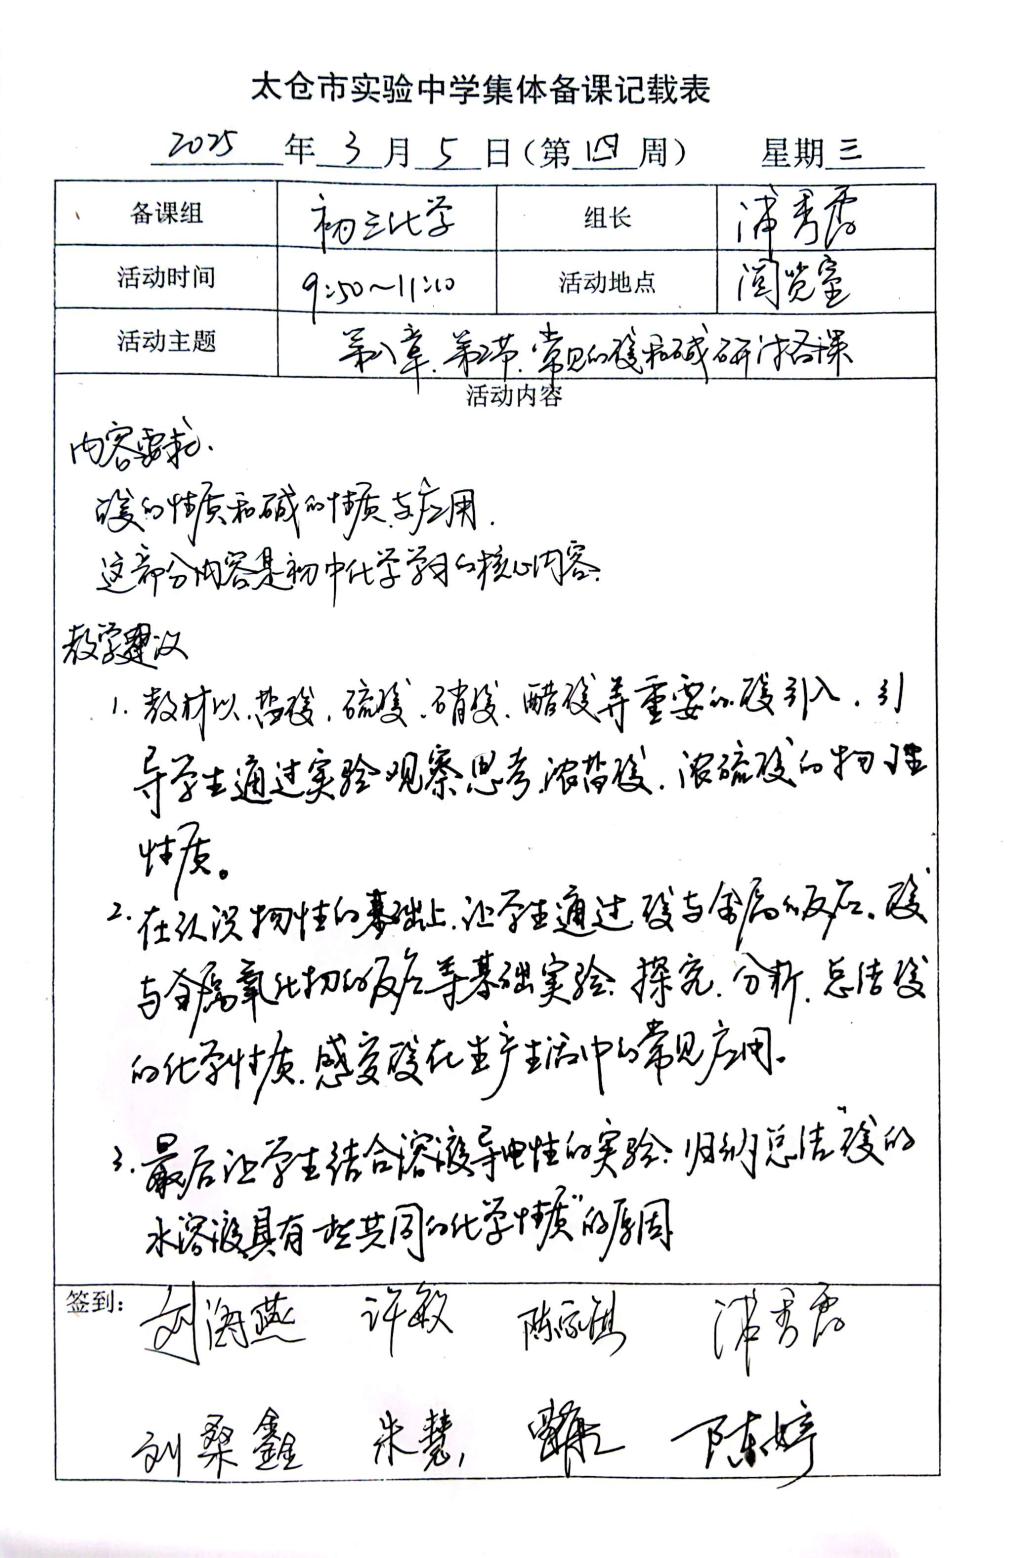 太仓市实验中学集体备课记载表
2025年3月5日(第四周) 星期三
备课组 初三化学 组长 浦秀霞
活动时间 9:50~11:10 活动地点 阅览室
活动主题 第八章.第2节.常见的酸和碱研讨备课
活动内容
内容要求.
酸的性质和碱的性质与应用.
这部分内容是初中化学学习的核心内容.
教学建议
1. 教材以.盐酸.硫酸.硝酸.醋酸等重要的酸引入.引
导学生通过实验观察思考.浓盐酸.浓硫酸的物理
性质。
2. 在认识物性的基础上.让学生通过酸与金属的反应。酸
与金属氧化物的反应等基础实验.探究.分析.总结酸
的化学性质.感受酸在生产生活中的常见应用。
3. 最后让学生结合溶液导电性的实验.归纳总结"酸的
水溶液具有一些共同的化学性质"的原因
签到: 刘海燕 许敏 陈家祺 浦秀霞
刘桑鑫 朱慧 陈婷